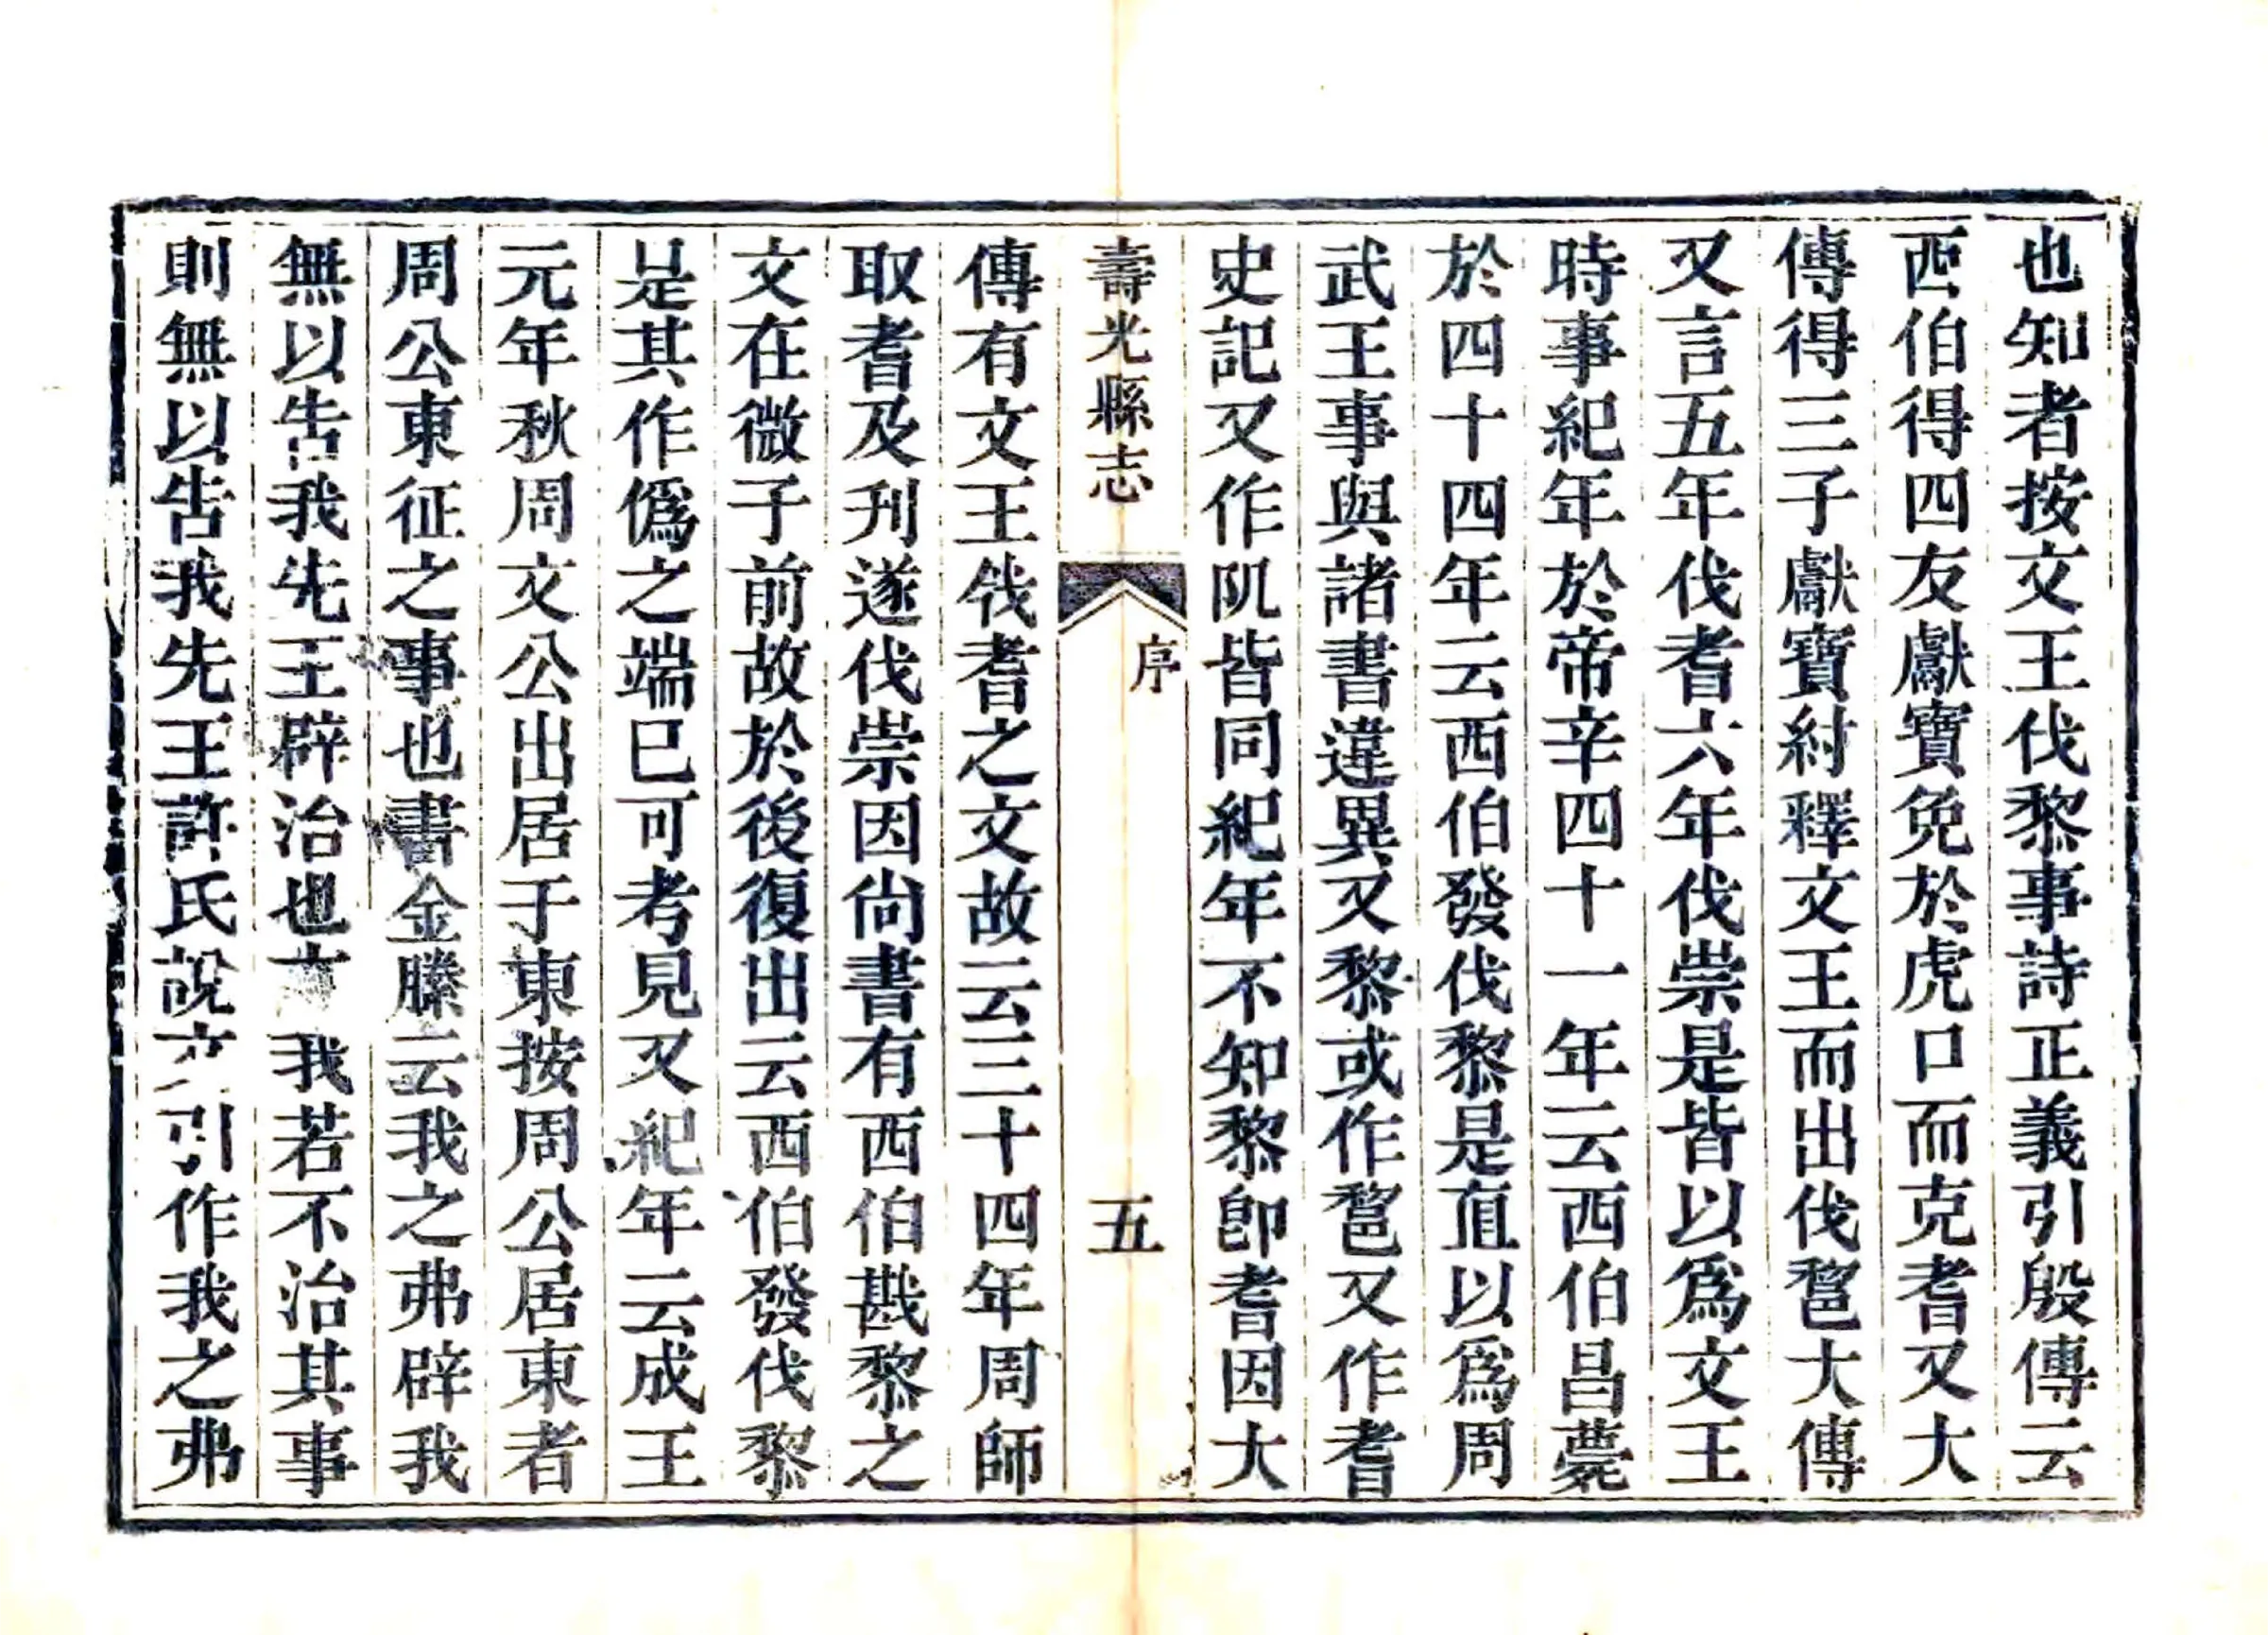 也知者按文王伐黎事詩正義引殷傳云
西伯得四友獻寶免於虎口而克耆又大
傳得三子獻寶紂釋文王而出伐䣛大傳
又言五年伐耆六年伐崇是皆以爲文王
時事紀年於帝辛四十一年云西伯昌薨
於四十四年云西伯發伐黎是直以爲周
武王事與諸書違異又黎或作䣛又作耆
史記又作阢皆同紀年不知黎卽耆因大
壽光縣志
序
五
傳有文王伐耆之文故云三十四年周師
取耆及刋遂伐崇因尙書有西伯戡黎之
文在微子前故於後復出云西伯發伐黎
是其作僞之端已可考見又紀年云成王
元年秋周文公出居于東按周公居東者
周公東征之事也書金縢云我之弗辟我
無以告我先王辟治也我若不治其事
則無以告我先王許氏說文引作我之弗